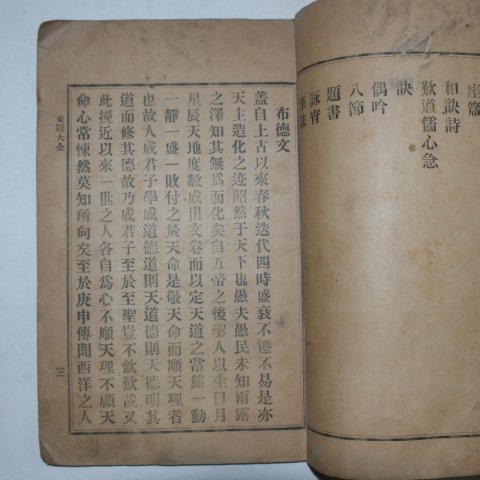 座箴
和訣詩
歎道儒心急
訣
偶吟
八節
題書
詠宵
筆法
布德文
盖自上古以來春秋迭代四時盛衰不遷不易是亦
天主造化之迹昭然于天下也愚夫愚民未知雨露
之澤知其無爲而化矣自五帝之後聖人以生日月
星辰天地度數成出文卷而以定天道之常然一動
一靜一盛一敗付之於天命是敬天命而順天理者
也故人成君子學成道德道則天道德則天德明其
道而修其德故乃成君子至於至聖豈不欽歎哉又
此挽近以來一世之人各自爲心不順天理不顧天
命心常悚然莫知所向矣至於庚申傳聞西洋之人
東經大全
三